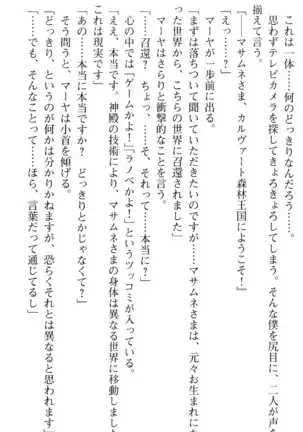 これは一体……何のどっきりなんだろう……。
思わずテレビカメラを探してきょろきょろしてしまう。そんな僕を尻目に、二人が声を
揃えて言う。
『――マサムネさま、カルヴァート森林王国にようこそ！』
「えっ……？」
マーヤが一歩前に出る。
「まずは落ちついて聞いていただきたいのですが……マサムネさまは、元々お生まれにな
った世界から、こちらの世界に召還されました」
マーヤはさらりと衝撃的なことを言う。
「……召還？　ちょっ、……そ、それって……本当に？」
心の中では「ゲームかよ！」「ラノベかよ！」というツッコミが入っている。
「ええ、本当です。神殿の技術により、マサムネさまの身体は異なる世界に移動しました。
これは現実です」
「あの……本当に本当ですか？　どっきりとかじゃなくて？」
そう問うと、マーヤは小首を傾げる。
「どっきり、というのが何かは分かりかねますが、恐らくそれとは異なると思われます」
「……でも、そんなことって……ほら、言葉だって通じてるし」